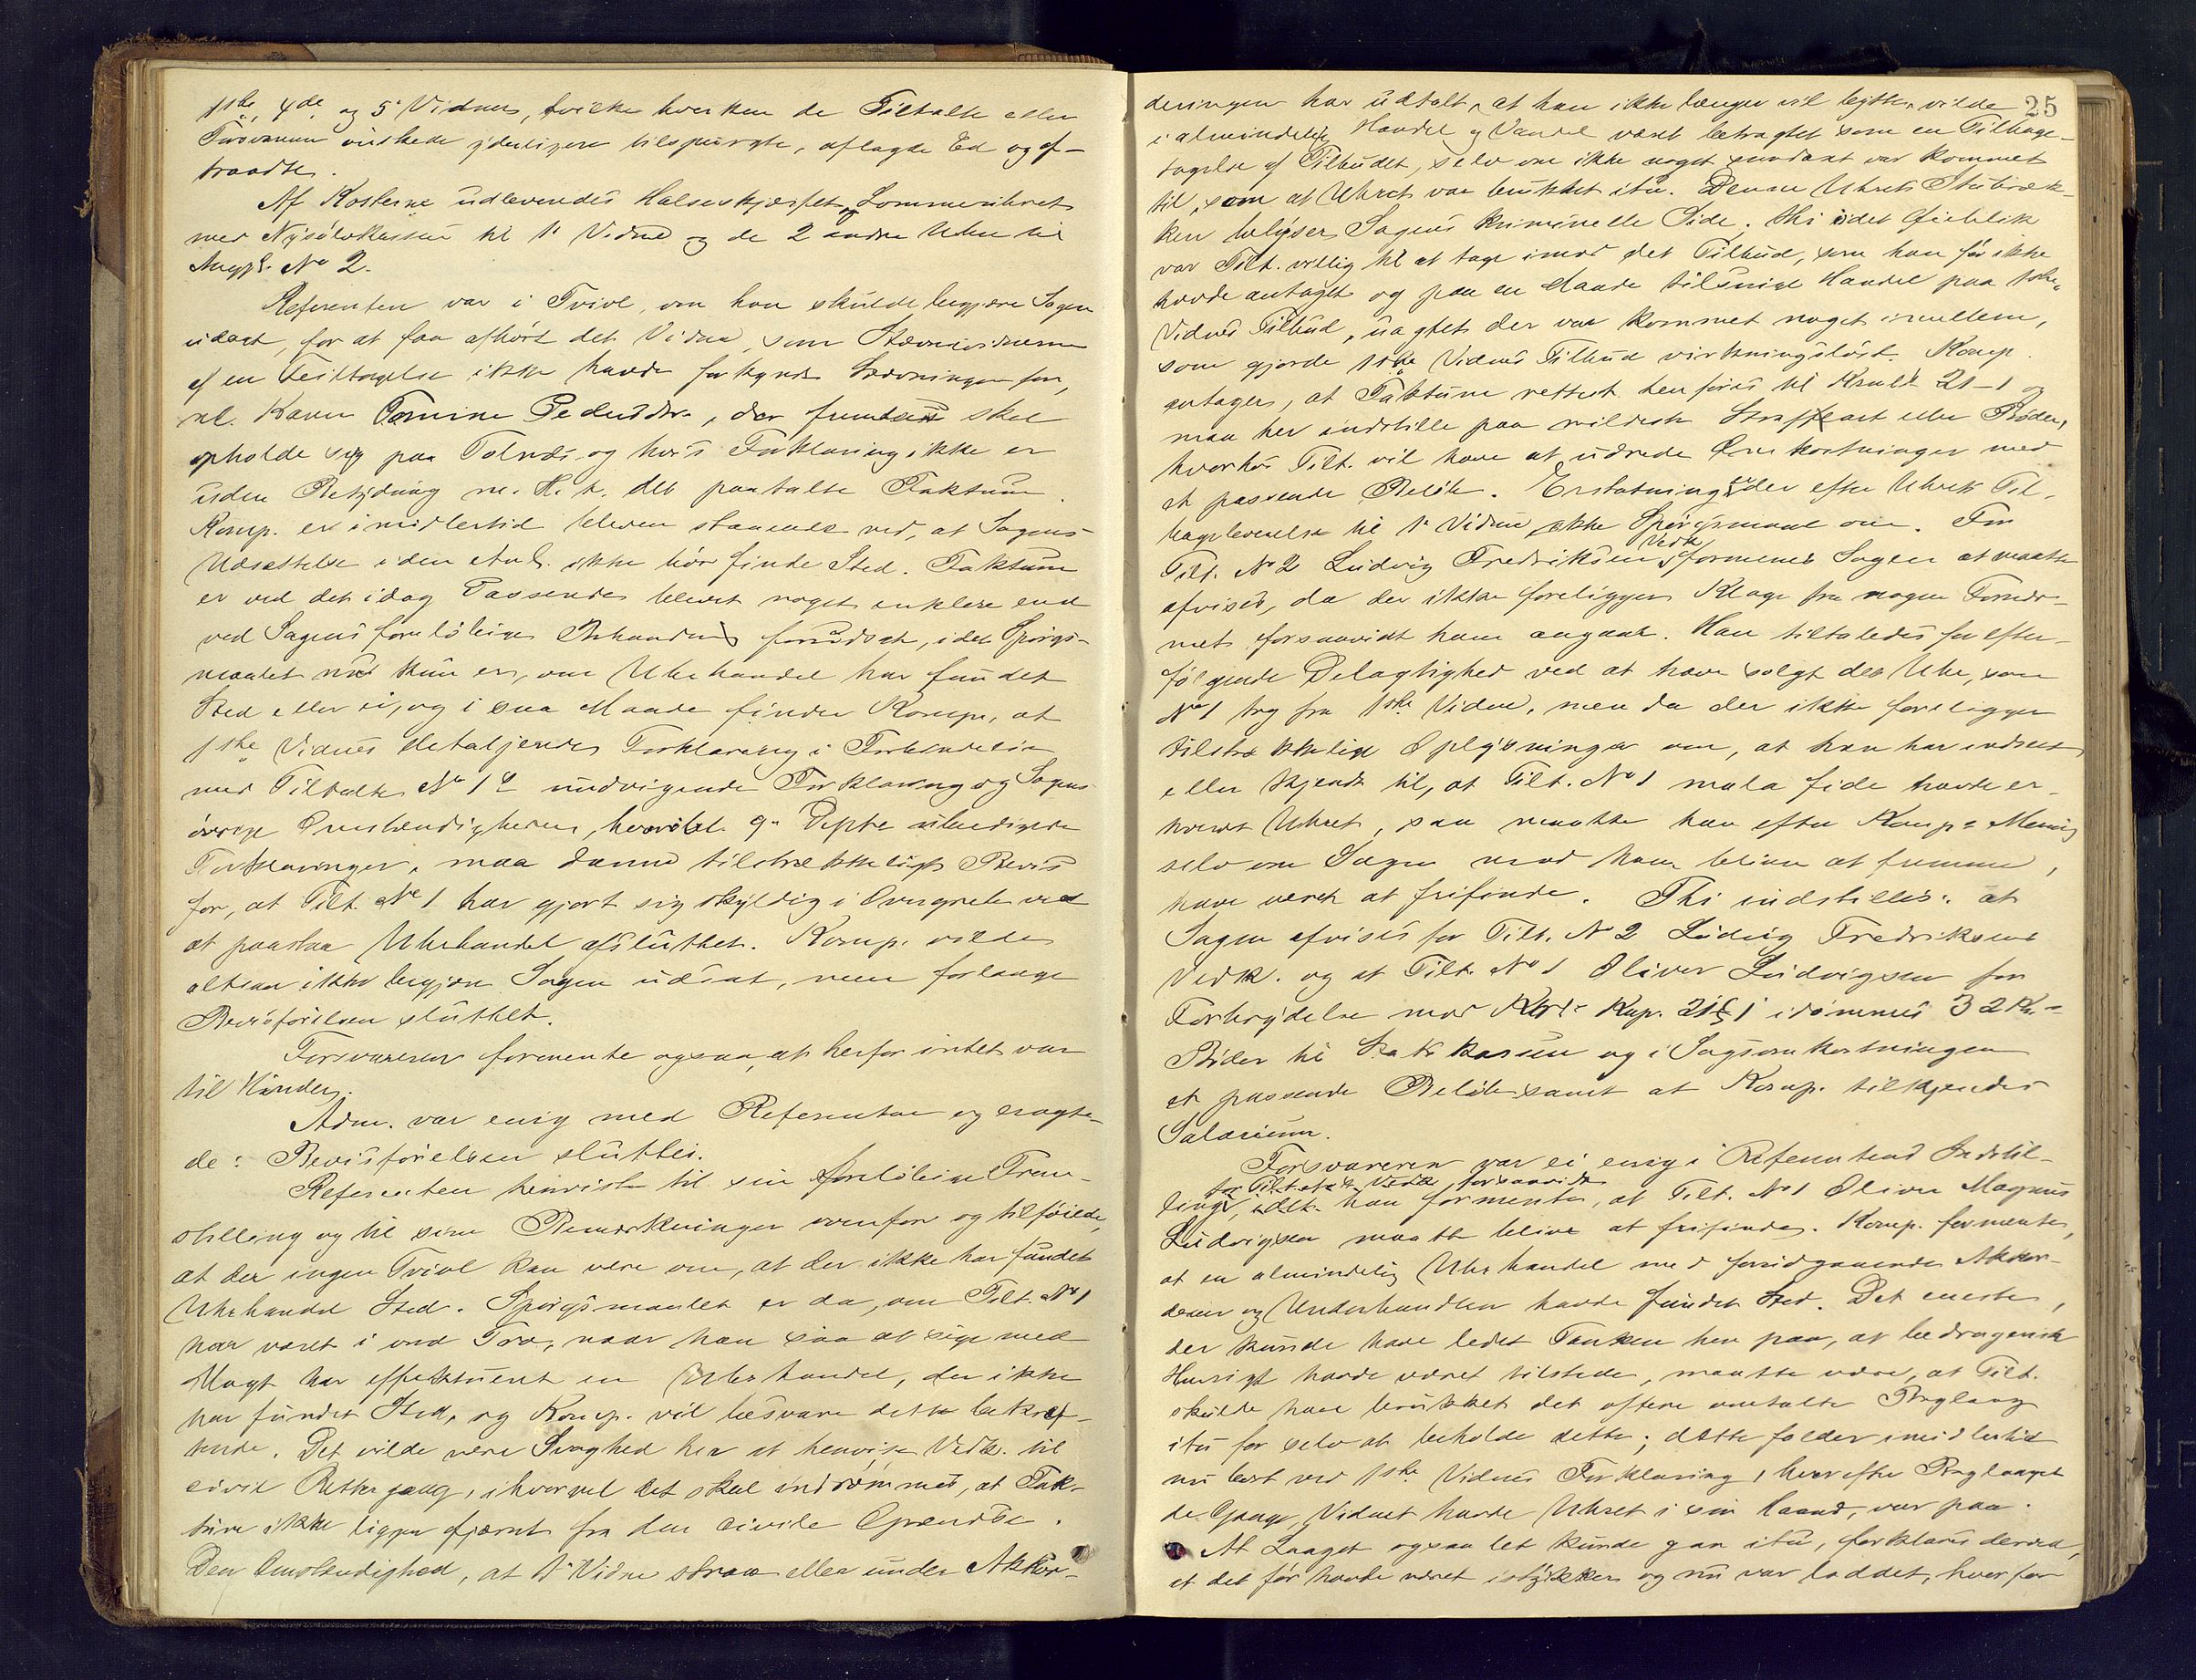 1ste, 4de og 5' Vidner, hvilke hverken de Tiltalte eller
Forsvareren önskede yderligere tilspurgte, aflagde Ed og af-
traadte.
Af Kosterne udleveredes Halsenskjærfet, Lommeuhret
med Nysölvkassen til 1' Vidne og de 2 andre Uhre til
Angjl. No 2.
Referenten var i Tvivl, om han skulde begjære Sagen
udsat, for at faa afhört det Vidne, som Stævnevidnerne
af en Feiltagelse ikke havde forkyndt Stævningen for,
nl. Karen Tomine Pedersdtr., der fremdeles skal
opholde sig paa Tolnæs og hvis Forklaring ikke er
uden Betydning m. H. t. det paatalte Faktum.
Komp. er imidlertid bleven staaende ved, at Sagens
Udsættelse i den Anl. ikke bör finde Sted. Faktum
er ved det idag Passerede blevet noget enklere end
ved Sagens foreløbige Behandling forudsat, idet Spörgs-
maalet nu kun er, om Uhrhandel har fundet
Sted eller ei, og i saa Maade finder Komp., at
1ste Vidnes detaljerede Forklaring i Forbindelse
med Tiltalte No 1s undvigende Forklaring og Sagens
övrige Omstændigheder, hvoriblt. 9. Depts ubeedigede
Forklaringer, maa danne tilstrækkeligt Bevis
for, at Tilt. No 1 har gjort sig skyldig i Overgreb ved
at paastaa Uhrhandel afsluttet. Komp. vilde
altsaa ikke begjære Sagen udsat, men forlange
Bevisförelsen sluttet.
Forsvareren formente ogsaa, at herfor intet var
til Hinder.
Adm. var enig med Referenten og eragte-
de: Bevisförelsen sluttes.
Referenten henviste til sin foreløbige Frem-
stilling og til sine Bemærkninger ovenfor og tilföiede,
at der ingen Tvivl kan være om, at der ikke har fundet
Uhrhandel Sted. Spörgsmaalet er da, om Tilt. No 1
har været i ond Tro, naar han saa at sige med
Magt har effektueret en Uhrhandel, der ikke
har fundet Sted, og Komp. vil besvare dette bekræf-
tende. Det vilde være Svaghed her at henvise Vedk. til
civil Rettergang, ihvorvel det skal indrömmes, at Fak-
tum ikke ligger fjærnt fra den civile Grændse.
Den Omstændighed, at 1' Vidne strax eller under Akkor-
25
deringen har udtalt, at han ikke længer vil bytte, vilde
i almindelig Handel og Vandel været betragtet som en Tilbage-
tagelse af Tilbudet, selv om ikke noget saadant var kommet
til, som at Uhret var brukket itu. Denne Uhrets Itubræk-
ken belyser Sagens kriminelle Side, thi i det Öieblik
var Tilt. villig til at tage imod det Tilbud, som han för ikke
havde antaget og paa en Maade tilsnige Handel paa 1ste
Vidnes Tilbud, uagtet der var kommet noget imellem,
som gjorde 1ste Vidnes Tilbud virkningslöst. Komp.
antager, at Faktum rettest henföres til Krmll 21-1 og
maa her indstille paa mildeste Straffeart eller Böder,
hvorhos Tilt. vil have at udrede Omkostninger med
et passende Belöb. Erstatning er der efter Uhrets Til-
bagelevelse til 1' Vidne ikke Spörgsmaal om. For
Tilt. No 2 Ludvig Fredriksens Vedk. formenes Sagen at maatte
afvises, da der ikke foreligger Klage fra nogen Fornær-
met forsaavidt ham angaar. Han tiltaledes for efter-
fölgende Delagtighed ved at have solgt det Uhr, som
No 1 tog fra 1ste Vidne, men da der ikke foreligger
tilstrækkelige Oplysninger om, at han har indseet
eller kjendt til, at Tilt. No 1 mala fide havde er-
hvervet Uhret, saa maatte han efter Komp.s Mening
selv om Sagen mod ham bliver at fremme,
have været at frifinde. Thi indstilles: at
Sagen afvises for Tilt. No 2 Ludvig Fredriksens
Vedk. og at Tilt. No 1 Oliver Ludvigsen for
Forbrydelse mod Kap. 21 § 1 idömmes 32 Kr.
Böder til Statskassen og i Sagsomkostninger
et passende Belöb samt at Komp. tilkjendes
Salærium.
Forsvareren var ei enig i Referentens Indstil-
for Tiltaltes Vedk. forsaavidt
ling, idet han formente, at Tilt. No 1 Oliver Magnus
Ludvigsen maatte blive at frifinde. Komp. formente,
at en almindelig Uhrhandel med forudgaaende Akkor-
deren og Underhandler havde fundet Sted. Det eneste,
der kunde have ledet Tanken hen paa, at bedragersk
Hensigt havde været tilstede, maatte være, at Tilt.
skulde have brukket det oftere omtalte Baglaag
itu for selv at beholde dette; dette falder imidlertid
nu bort ved 1ste Vidnes Forklaring, hvorefter Baglaaget
de Gange, Vidnet havde Uhret i sin Haand, var paa.
At Laaget ogsaa let kunde gaa itu, forklares derved,
at det för havde været istykker og nu var loddet, hvorfor